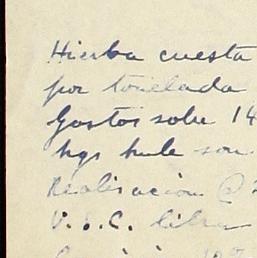 Hierba cuesta
por tonelada
Gastos sobre 14
kgs hule son
Realisación @
U.S.C. libra